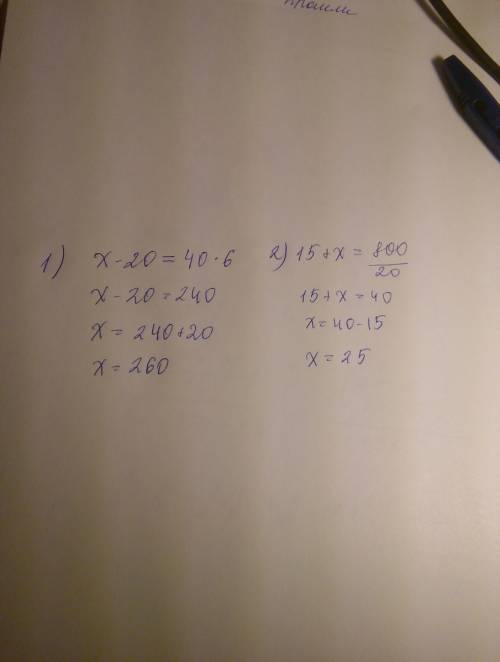 прошли
1) x - 20 = 40 · 6
x - 20 = 240
x = 240 + 20
x = 260
2) 15 + x = 800/20
15 + x = 40
x = 40 - 15
x = 25